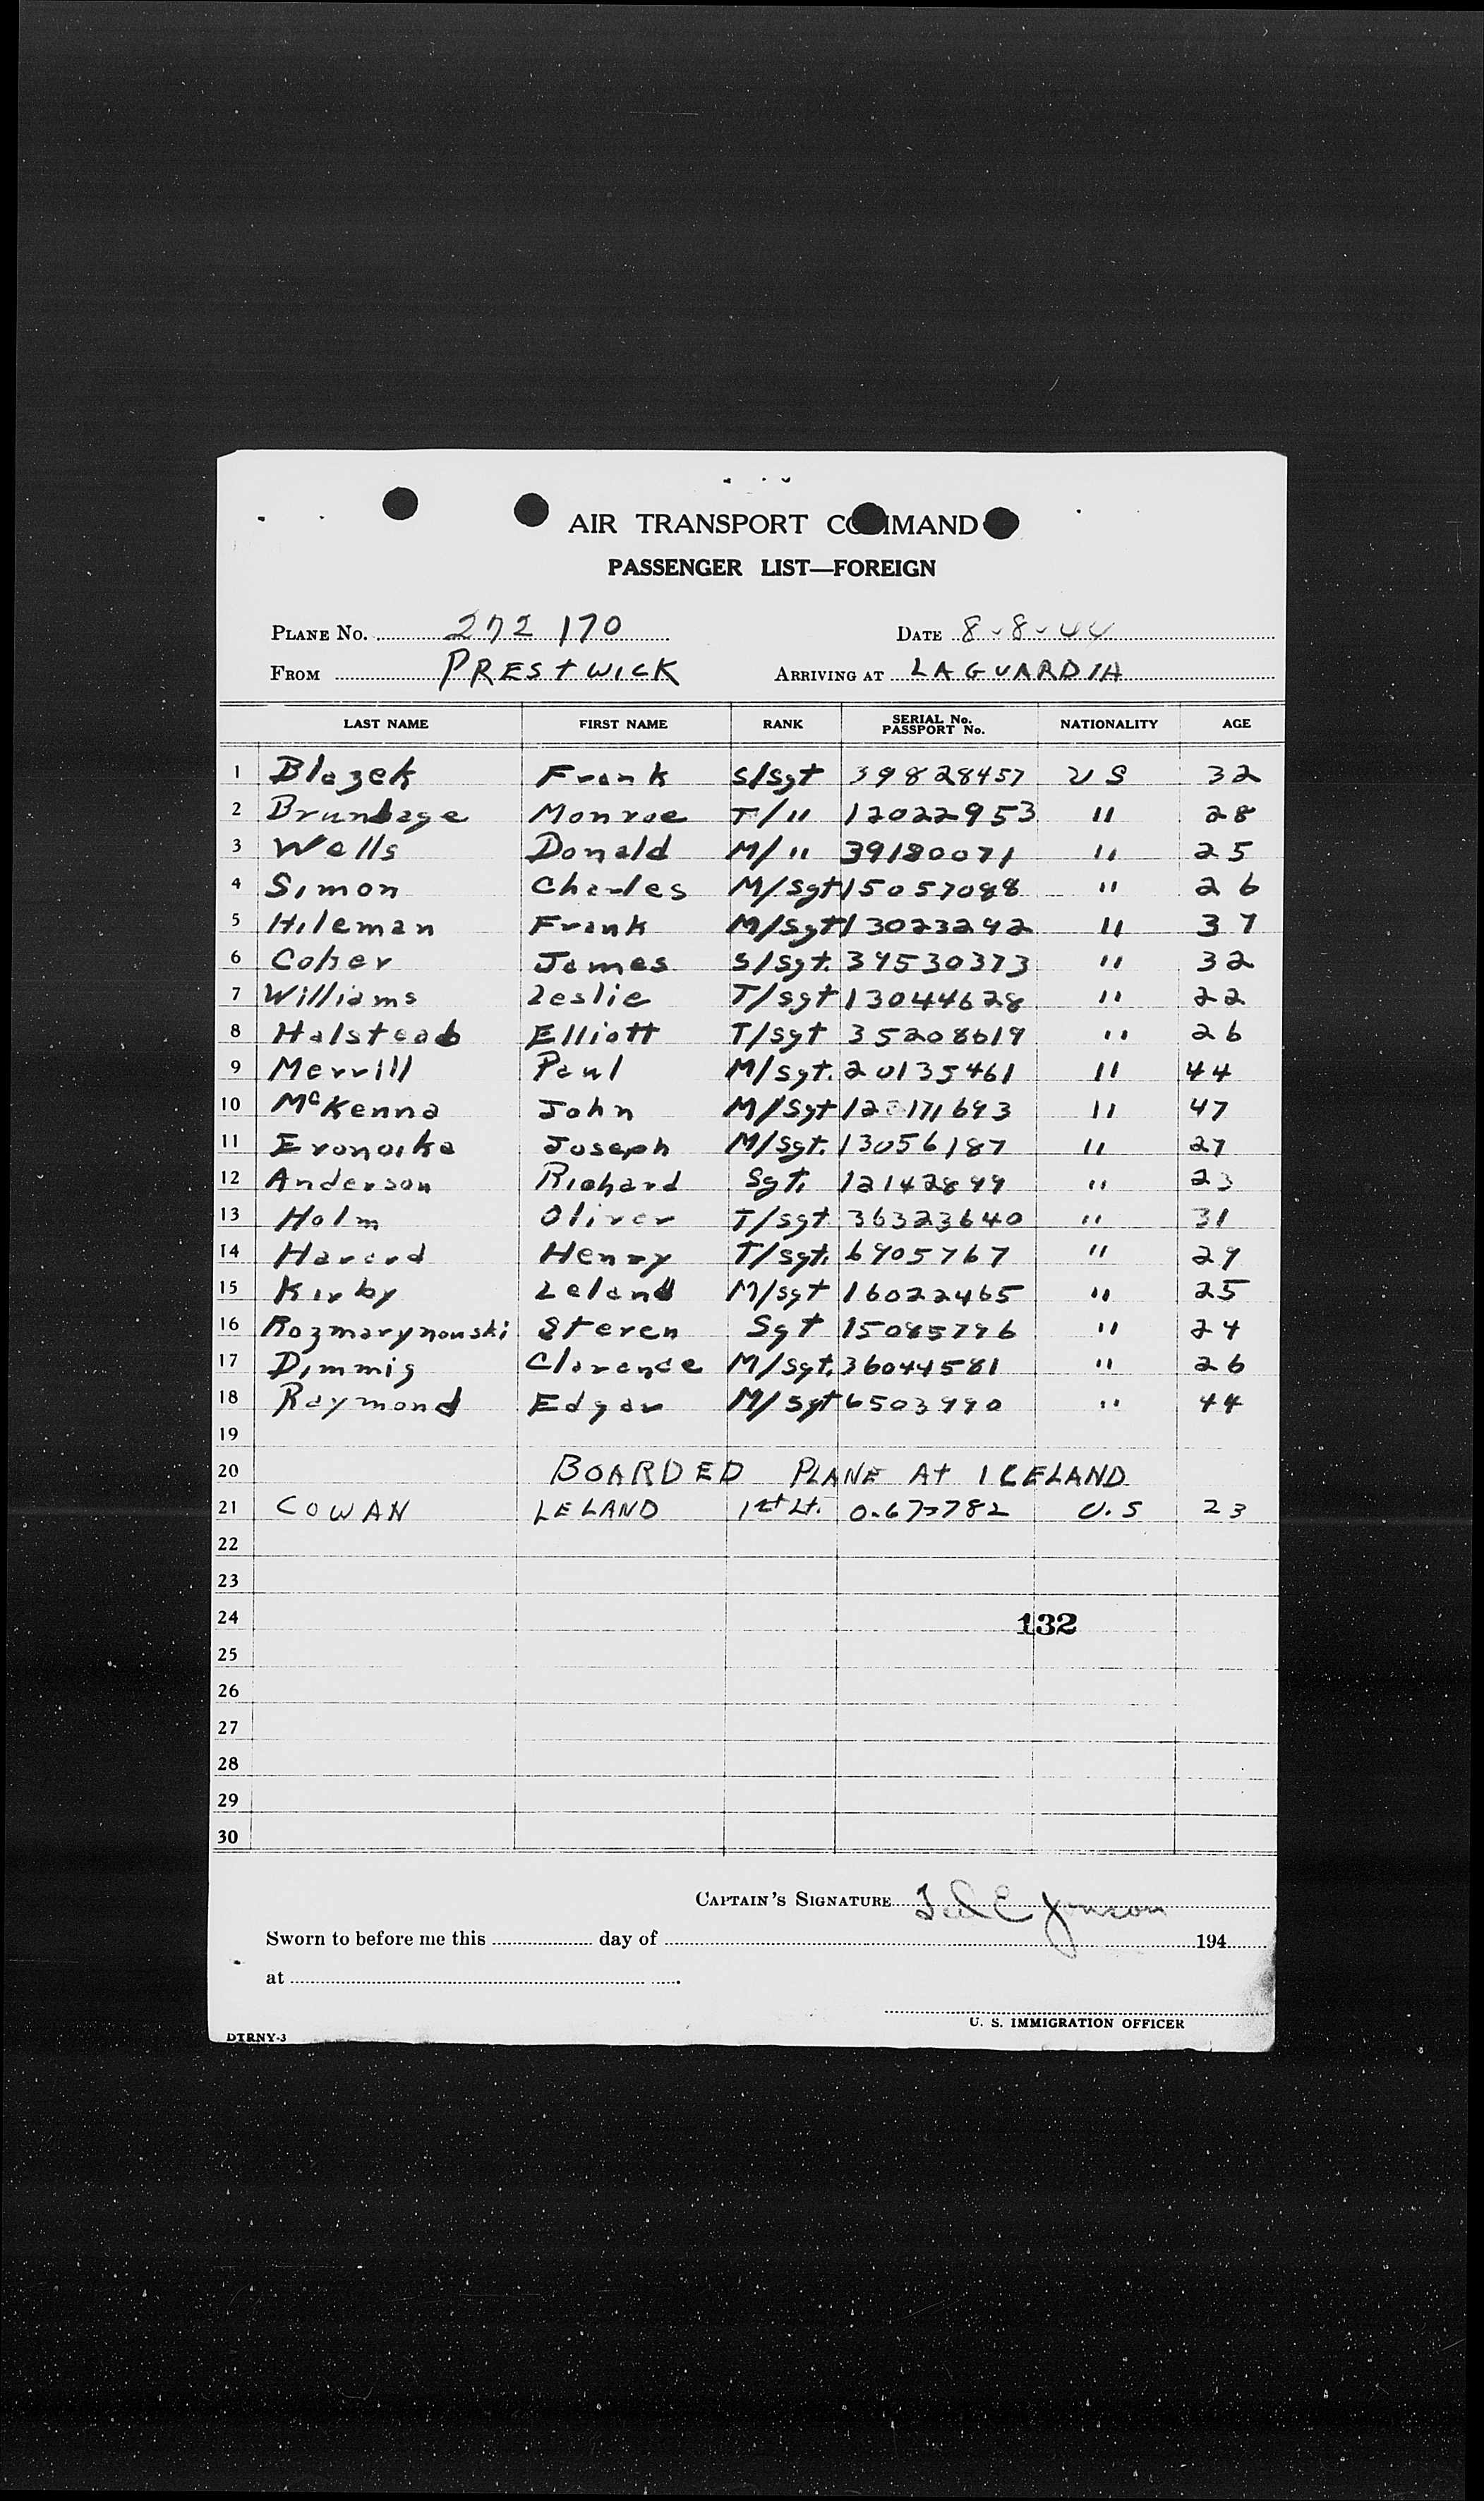 AIR TRANSPORT COMMAND
PASSENGER LIST—FOREIGN
PLANE NO. 272 170 DATE 8-8-44
FROM PRESTWICK ARRIVING AT LAGUARDIA
LAST NAME FIRST NAME RANK SERIAL No. PASSPORT No. NATIONALITY AGE
1 Blazek Frank S/Sgt 39828457 US 32
2 Brundage Monroe T/" 12022953 " 28
3 Wells Donald M/" 39180071 " 25
4 Simon Charles M/Sgt 15057088 " 26
5 Hileman Frank M/Sgt 13023292 " 37
6 Coher James S/Sgt. 39530373 " 32
7 Williams Leslie T/Sgt 13044628 " 22
8 Halstead Elliott T/Sgt 35208619 " 26
9 Merrill Paul M/Sgt. 20135461 " 44
10 McKenna John M/Sgt " 47
11 Joseph M/Sgt. 13056187 " 27
12 Anderson Richard Sgt. 12142899 " 23
13 Holm Oliver T/Sgt. 36323640 " 31
14 Harord Henry T/Sgt. 6905767 " 29
15 Kirby Leland M/Sgt 16022465 " 25
16 Rozmarynouski Steven Sgt 15085796 " 24
17 Dimmig Clarence M/Sgt. 36044581 " 26
18 Raymond Edgar M/Sgt 6503990 " 44
19
20 BOARDED PLANE At ICELAND
21 COWAN LELAND 1st Lt. U.S 23
22
23
24 132
25
26
27
28
29
30
CAPTAIN'S SIGNATURE
Sworn to before me this day of 194
at
U. S. IMMIGRATION OFFICER
DTRNY-3